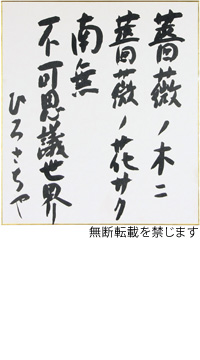 薔薇ノ木ニ
薔薇ノ花サク
南無
不可思議世界
ひろさちや
無断転載を禁じます